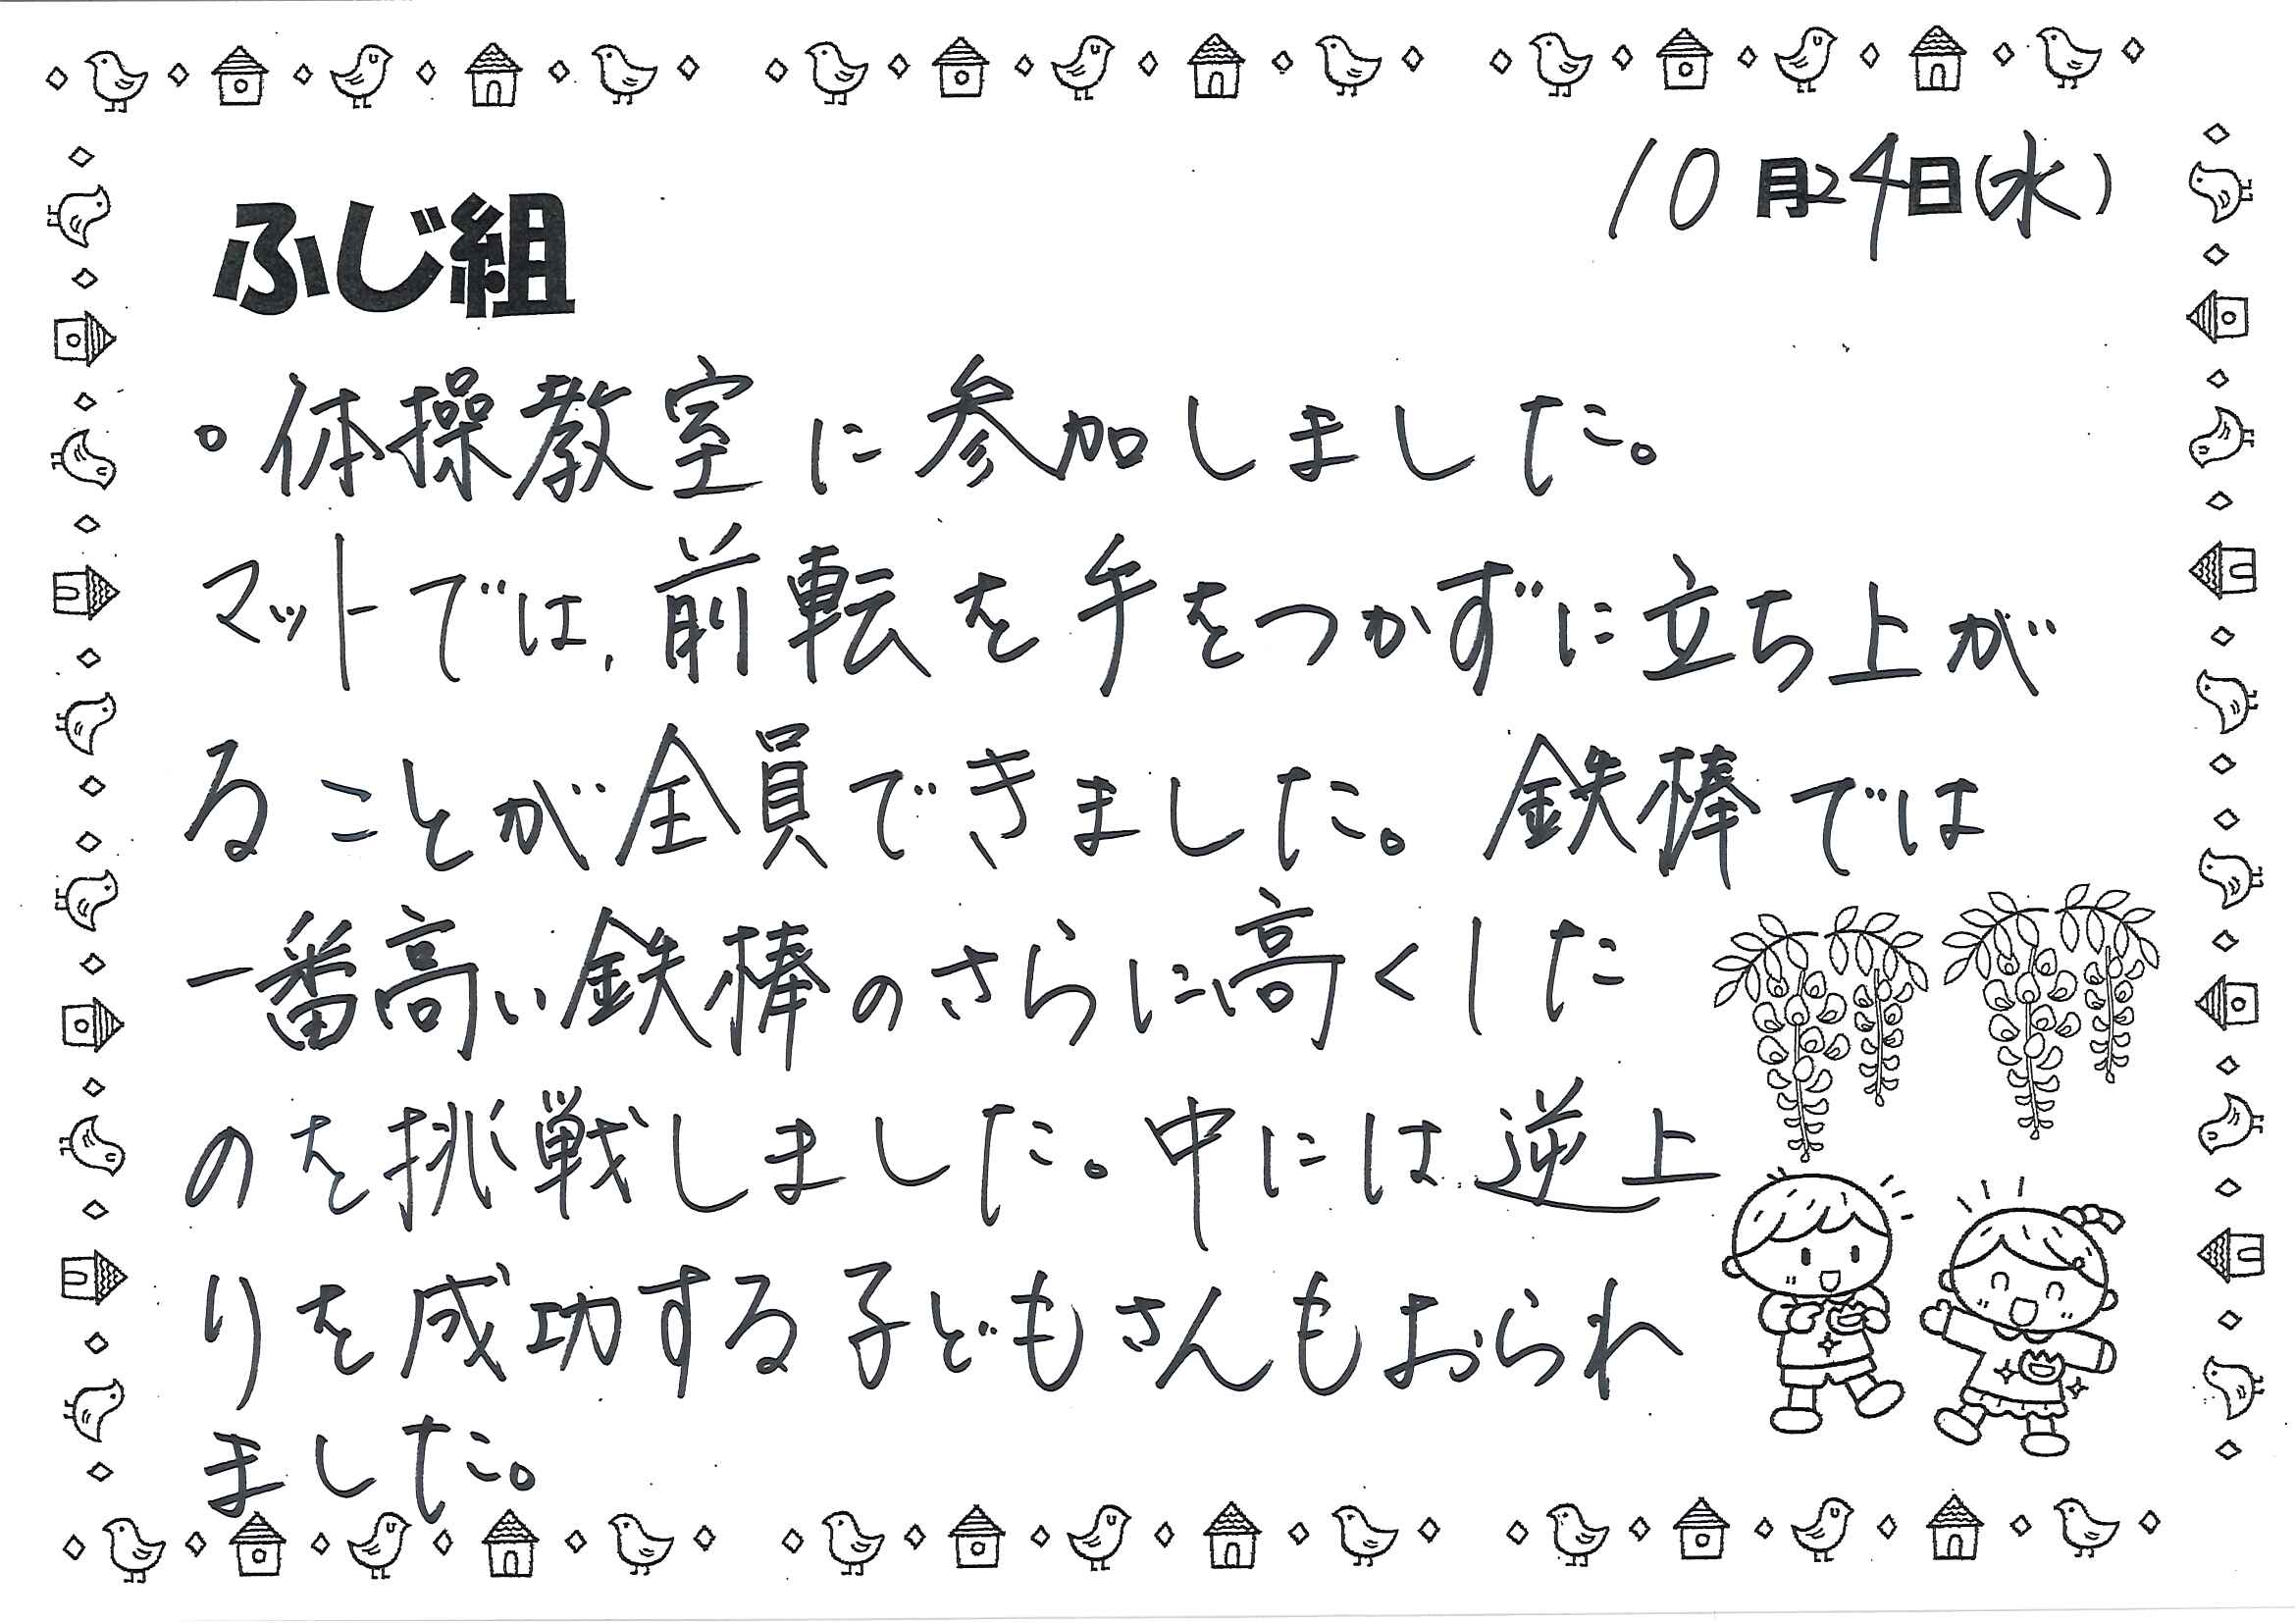 10月24日(水)
ふじ組
。体操教室に参加しました。
マットでは、前転を手をつかずに立ち上が
ることが全員できました。鉄棒では
一番高い鉄棒のさらに高くした
のを挑戦しました。中には逆上
りを成功する子どもさんもおられ
ました。